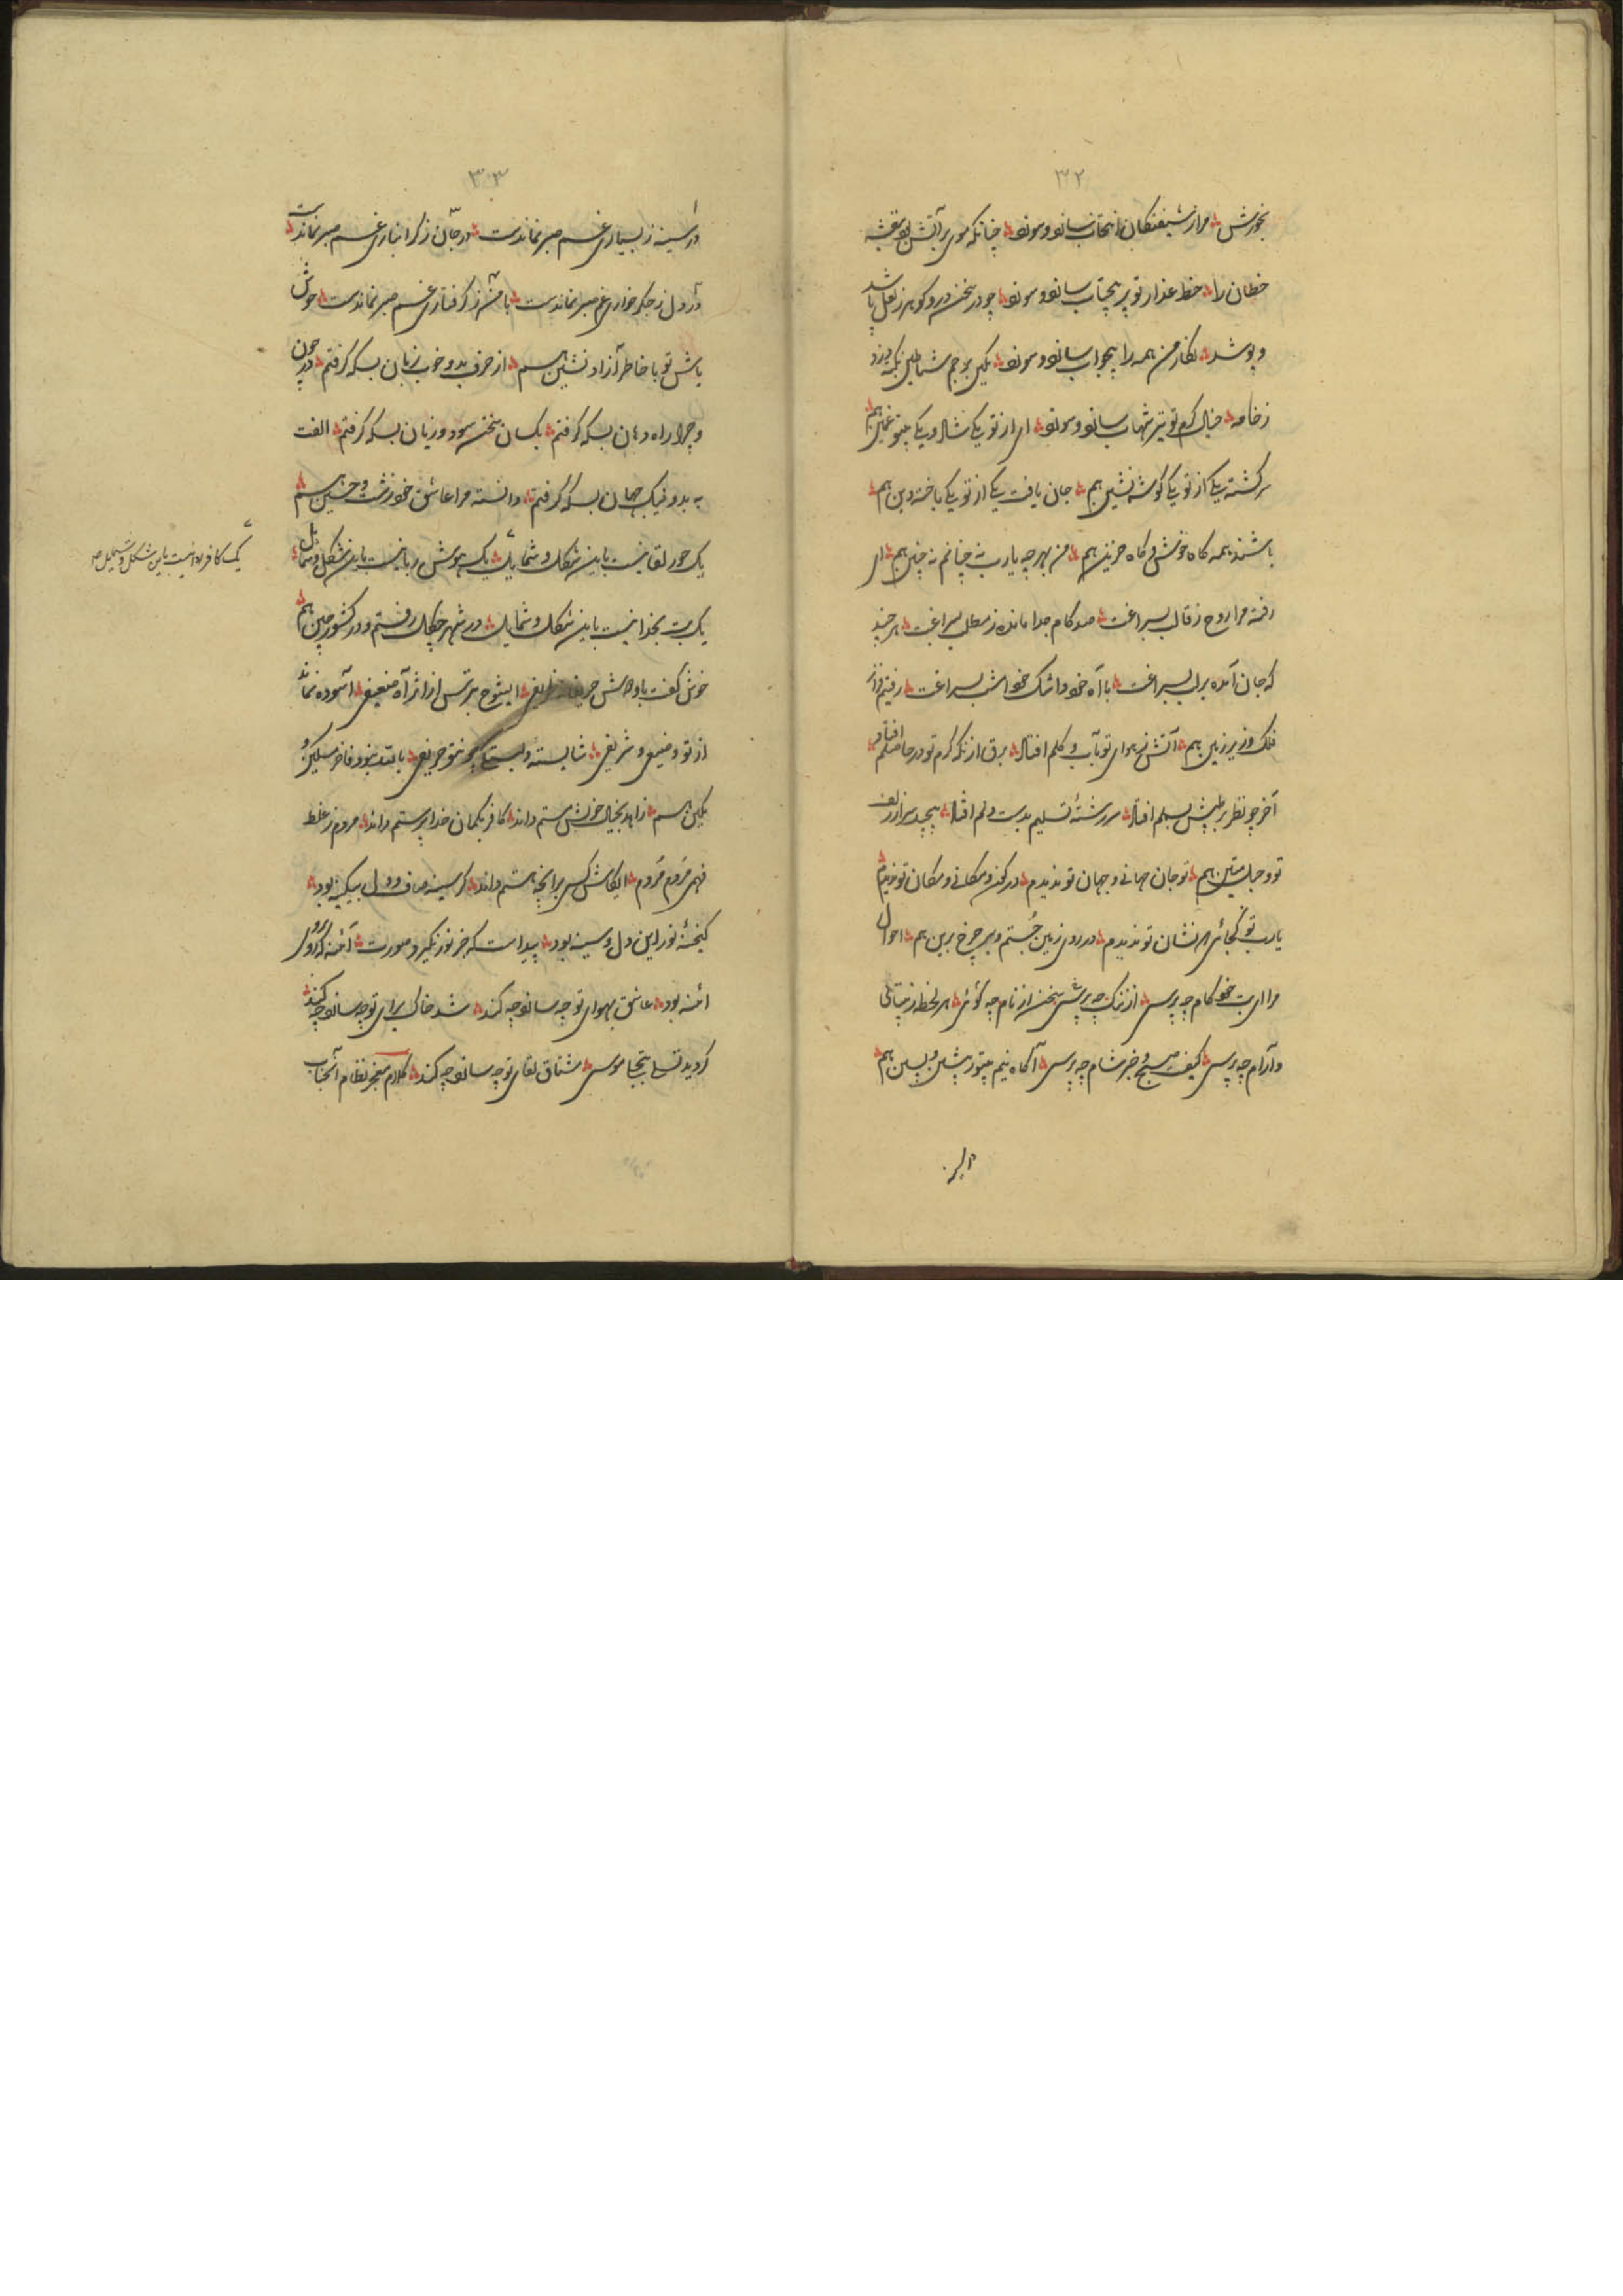 ۳۲
بخورشی مرا از شیفتگان انتخاب سازد و سوزد چنانکه موی بر آتش بنفشه
خطان را خط عذار تو پر پیچ و تاب سازد و سوزد چو در سخن در و گوهر ز لعل پاشد
و پوشد نگار من همه را بیجواب سازد و سوزد یکی برجم شیاطین یکی
ز خامه خیال کرم تو تیر شهاب سازد و سوزد ای از تو یکی شاد و یکی بتو غمین هم
سرگشته یکی از تو یکی گوشه نشین هم جان یافت یکی از تو یکی باخته دین هم
باشند همه گاه خوش و گاه حزین هم من بهر چه یارب نه چنانم نه چنین هم ای
رفته مرا روح ز قالب بسراغت صد کام جدا مانده ز مطلب بسراغت هر چند
که جان آمده بر لب بسراغت با آه خود و اشک خود امشب بسراغت رفتیم
فلک و زیر زمین هم آتش ز هوای تو بآب و گلم افتاد برق از نگه گرم تو در حاصلم افتاد
آخر چو نظر بر طپش بسملم افتاد سر رشتهٔ تسلیم بدست دلم افتاد پیچید سر از زلف
تو و حبل متین هم تو جان جهانی و جهان تو ندیدم در کون و مکانی و مکان تو ندیدم
یارب تو کجائی که نشان تو ندیدم در روی زمین جستم و بر چرخ برین هم احوال
مرا ای بت خودکام چه پرسی از ننگ چه پرسی سخن از نام چه گوئی هر لحظه ز بیتابی
و آرام چه پرسی کیف صبح و خبر شام چه پرسی آگاه نیم بیتو ز پیشین و پسین هم
در سینه
۳۳
در سینه ز بسیاری غم صبر نماندست در جان ز گرانباری غم صبر نماندست
در دل ز جگرخواری غم صبر نماندست با من ز گرفتاری غم صبر نماندست خوش
باش تو با خاطر آزاد نشین هم از حرف بد و خوب زبان بسکه گرفتم در چون
و چرا راه دهان بسکه گرفتم یکسان سخن سود و زیان بسکه گرفتم الفت
به بد و نیک جهان بسکه گرفتم دانسته مرا عاشق خود زشت و حسین هم
یک حور لقا نیست باین شکل و شمایل یک هوش ربا نیست باین شکل و شمایل
یک بت بخدا نیست باین شکل و شمایل در شهر چگل رفتم و در کشور چین هم
خوش گفت باوباش حریفانه ظریفی ایشوخ بترس از اثر آه ضعیفی آسوده نماند
از تو وضیعی و شریفی شایسته و بتو حریفی با
یکین هم زاهد بخیال خویش مستم داند کافر بگمان خدا پرستم داند مردم ز غلط
فهمی مردم مردم ایکاش کسی هر آنچه هستم داند گر سینهٔ صاف و دل بیکینه بود
گنجینهٔ نور این دل و سینه بود پیداست که جز نور نگیرد صورت آئینه که رو بروی
آئینه بود عاشق بهوای تو چه سازد چه کند شد خاک برای تو چه سازد چه کند
گردید تسلی بتجلی موسی مشتاق لقای تو چه سازد چه کند کلام معجز نظام آنجناب
یک کافر نیست باین شکل و شمایل صح